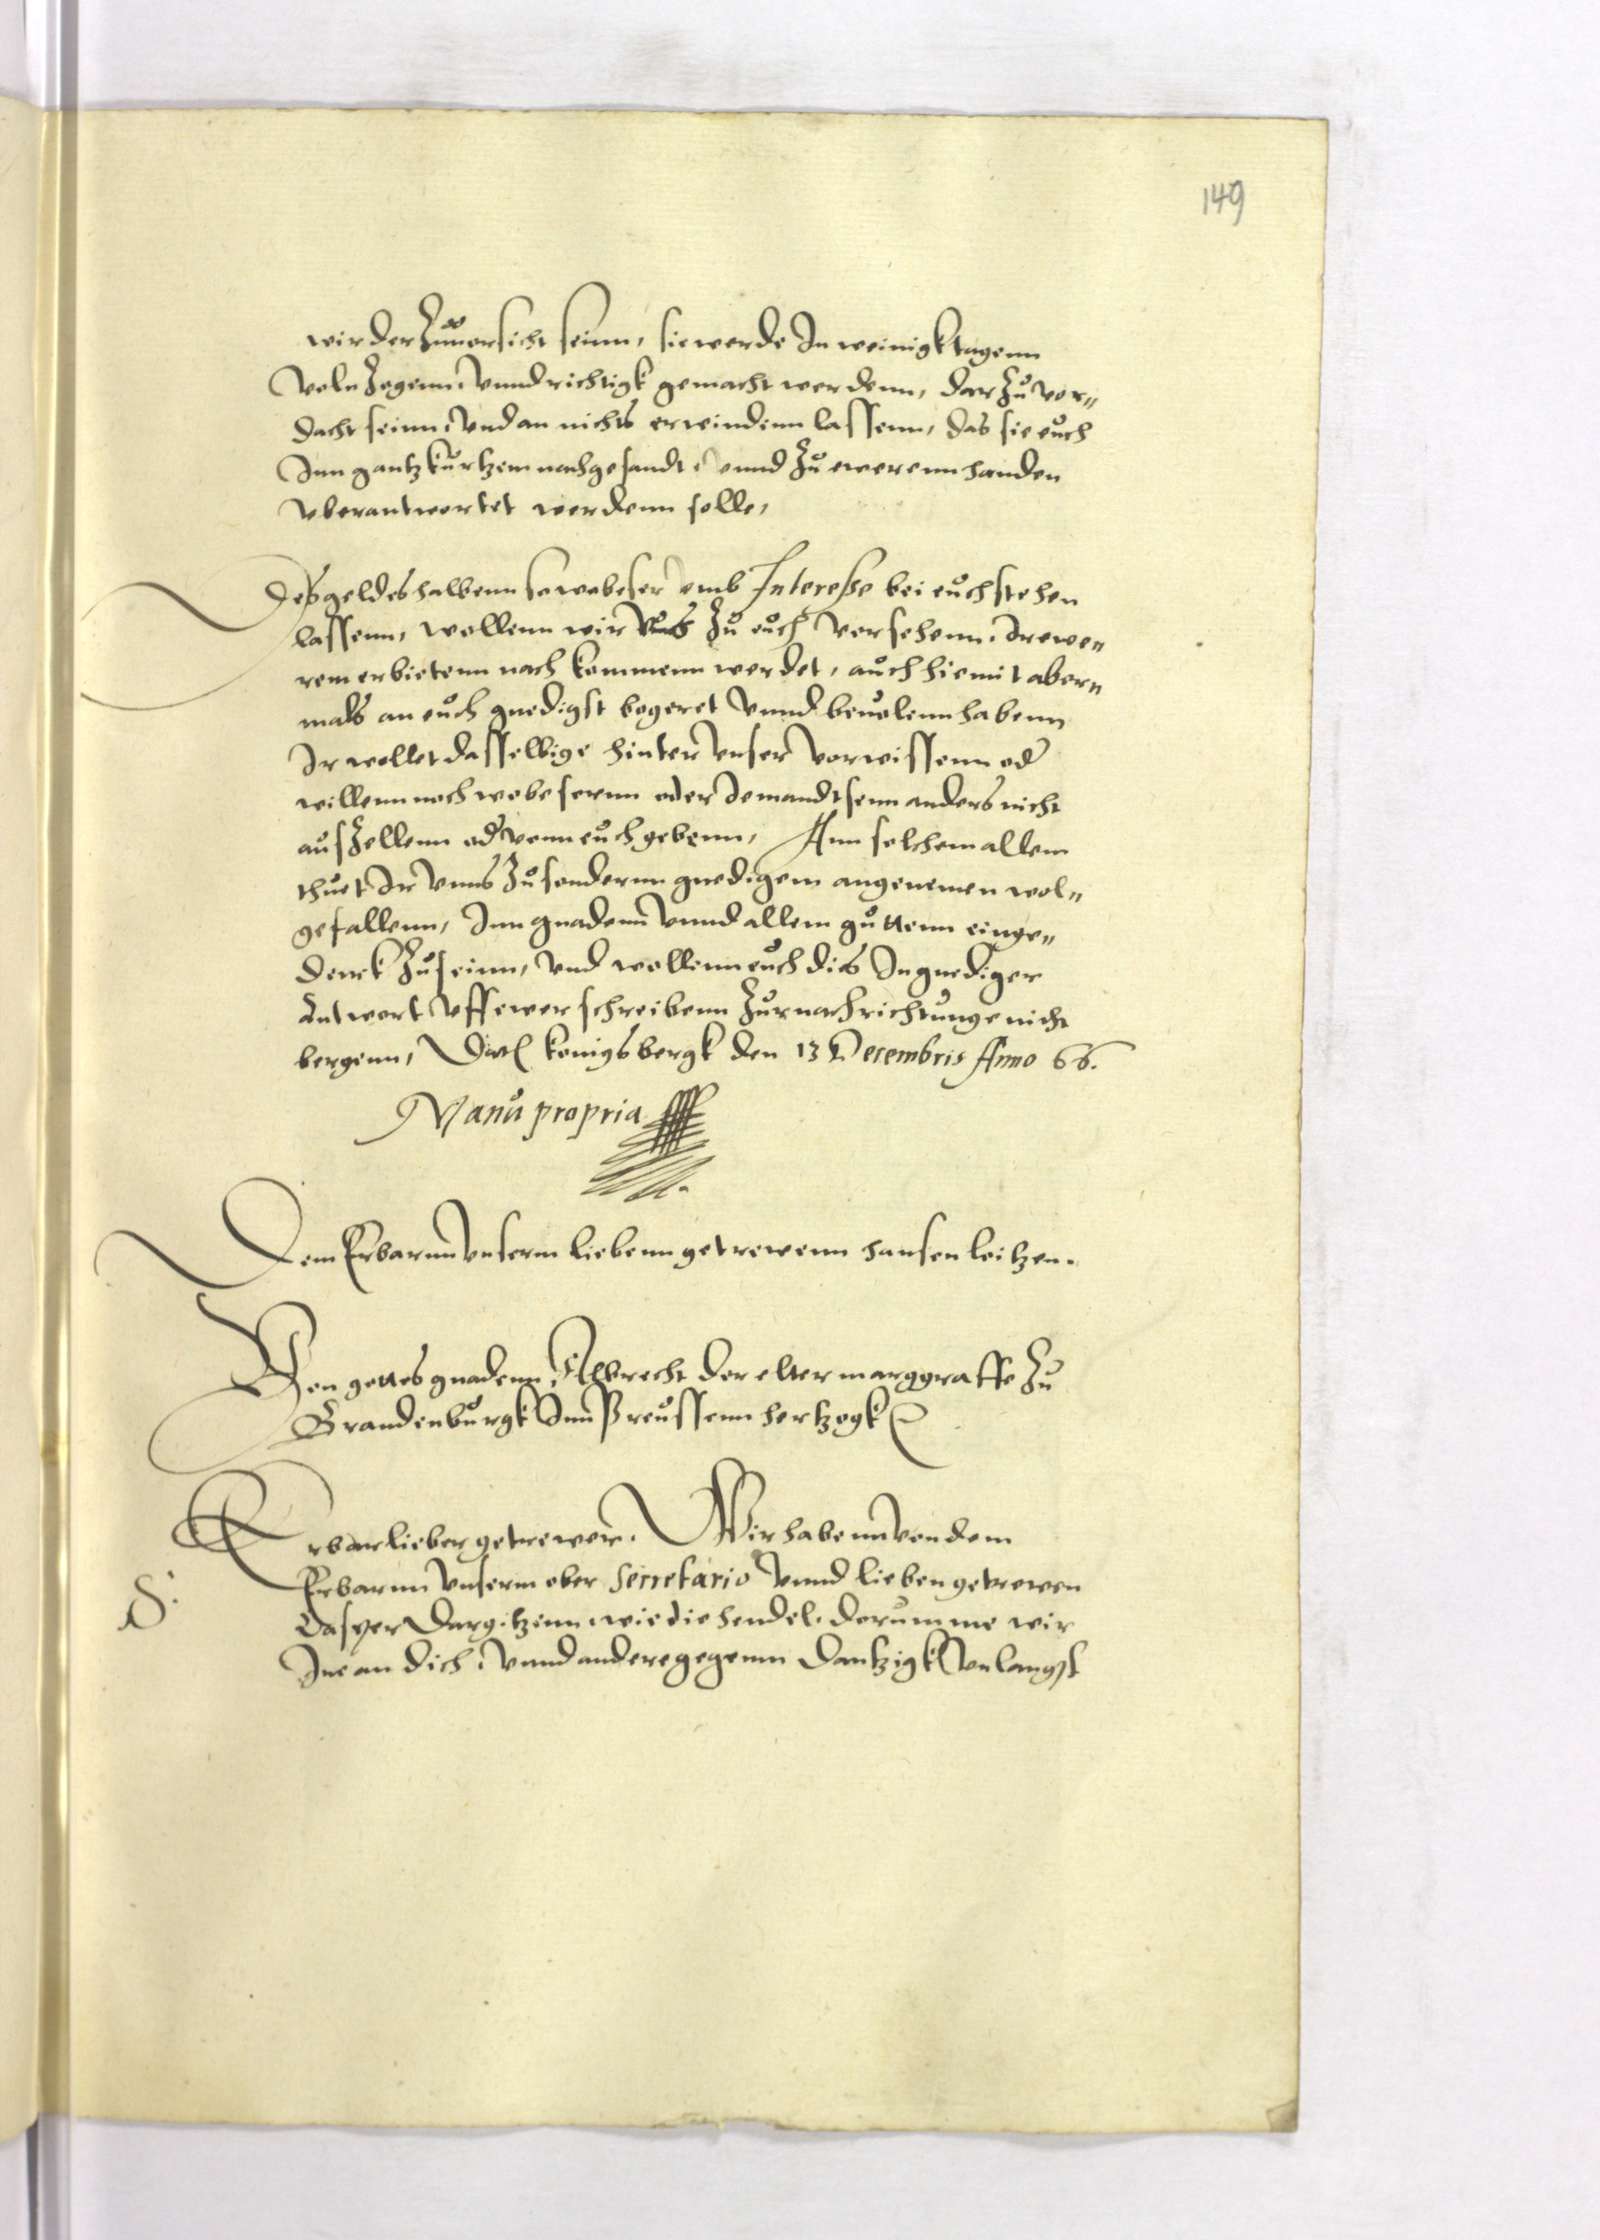 149
wir der Zuuorsicht seinn, sie werde In weinigk tagenn
Voln Zogenn, Vnnd richtigk gemacht werdenn, dar Zu vor„
dacht seinn, Vnd an nichts erwindenn lassenn, das sie euch
Inn gantz kurtzem nachgesandt, vnnd Zu ewerenn handen
vberantwortet werdenn solle,
Des geldes halbenn so wobeser vmb Interesse bei euch stehen
lassenn, wollenn wir Vns Zu euch vorsehenn, Ir ewe„
rem erbietenn nach kommenn werdet, auch hiemit aber„
mals an euch gnedigst begeret Vnnd beuolenn habenn
Ir wollet dasselbige hinter Vnser Vorwissenn od
willenn noch wobesernn oder Jemandtsenn anders nicht
ausZellenn od vonn euch gebenn, Ann solchem allem
thuet Ir Vnns Zu sondernn gnedigem angenemen wol„
gefallenn, Inn gnadenn Vnnd allem guttenn einge„
denck Zu seinn, Vnd wollenn euch dis In gnediger
Antwort Vff ewer schreibenn Zur nachrichtunge nicht
bergenn, Dat konigsbergk den 13 Decembris Anno 66.
Manu propria
Dem Erbarnn Vnserm liebenn getrewenn hansen leitzen.
Von gottes gnadenn Albrecht der elter marggraffe Zu
Brandenburgk Inn Preussenn hertzogk
Erbar lieber getrewer. Wir habenn von dem
Erbarnn Vnserm ober Secretario Vnnd lieben getrewen
Dargitzenn, wie die hendel, dorumme wir
Ine an dich, Vnnd andere gegenn Dantzigk Vnlangst